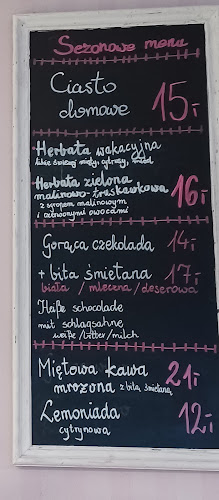 Sezonowe menu
Ciasto
domowe 15,-
Herbata wakacyjna
liście świeżej mięty, cytryny, miód
Herbata zielona
malinowo-truskawkowa 16,-
z syropem malinowym
i czerwonymi owocami
Gorąca czekolada 14,-
+ bita śmietana 17,-
biała / mleczna / deserowa
Heiße schocolade
mit schlagsahne
weiße/bitter/milch
Miętowa kawa 21,-
mrożona z bitą śmietaną
Lemoniada 12,-
cytrynowa